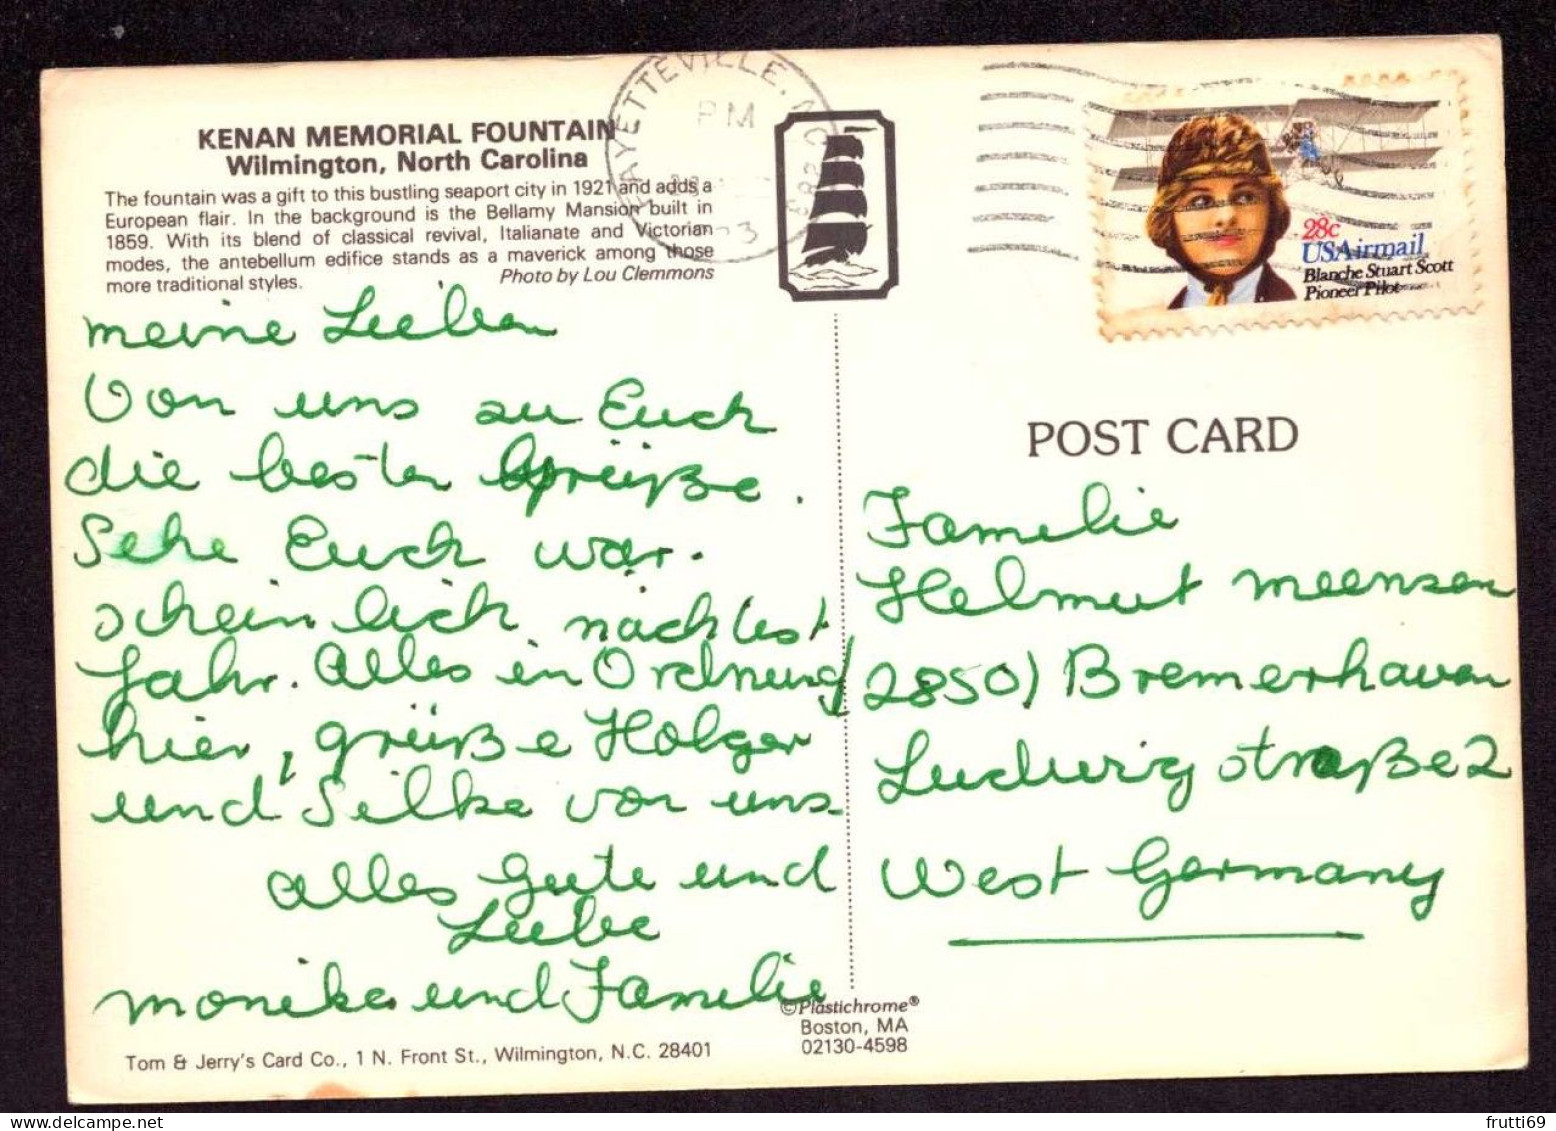 KENAN MEMORIAL FOUNTAIN
Wilmington, North Carolina
The fountain was a gift to this bustling seaport city in 1921 and adds a
European flair. In the background is the Bellamy Mansion built in
1859. With its blend of classical revival, Italianate and Victorian
modes, the antebellum edifice stands as a maverick among those
more traditional styles.
Photo by Lou Clemmons
meine Lieben
Von uns zu Euch
die besten Grüße.
Sehe Euch war-
scheinlich nächstest
Jahr. Alles in Ordnung
hier, grüße Holger
und Silke von uns
alles Gute und
Liebe
Monika und Familie
Tom & Jerry's Card Co., 1 N. Front St., Wilmington, N.C. 28401
©Plastichrome®
Boston, MA
02130-4598
FAYETTEVILLE, NC
PM
28c
USAirmail
Blanche Stuart Scott
Pioneer Pilot
POST CARD
Familie
Helmut Meensen
2850) Bremerhaven
Ludwigstraße 2
West Germany
frutti69